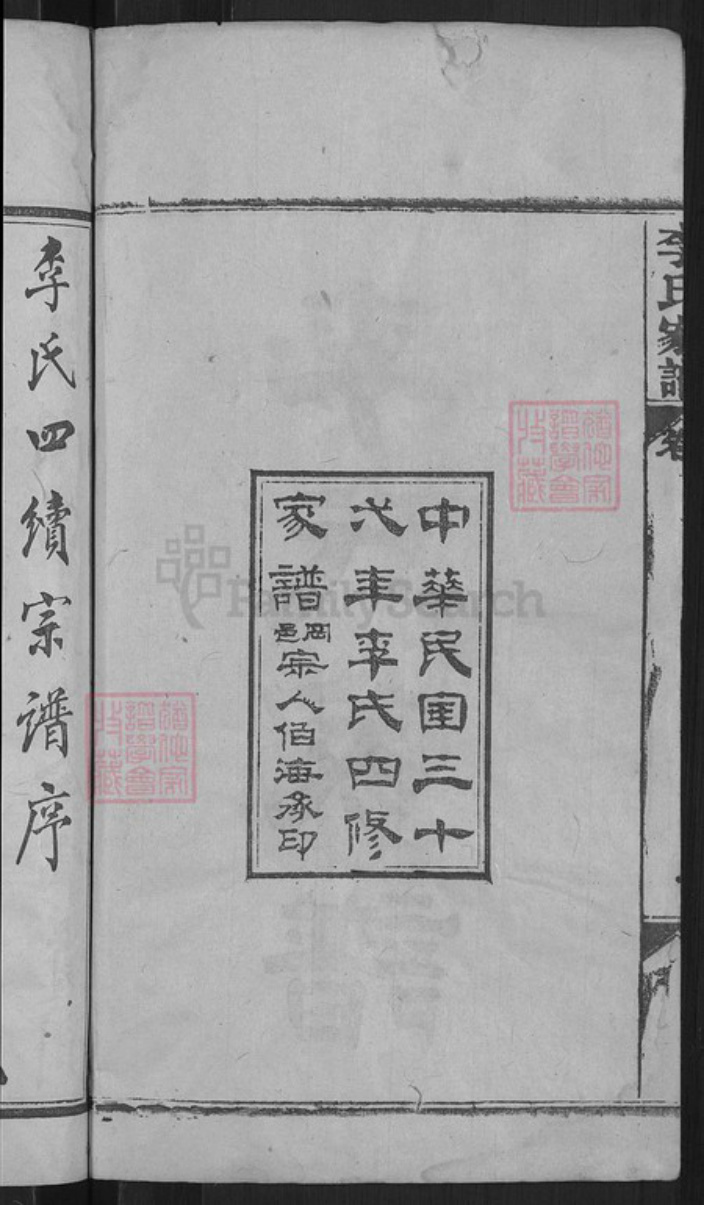 李氏家譜 卷
中華民囯三十
六年李氏四修
家譜岡邑宗人佰海承印
猶他家
譜學會
收藏
FamilySearch
猶他家
譜學會
收藏
李氏四續宗譜序